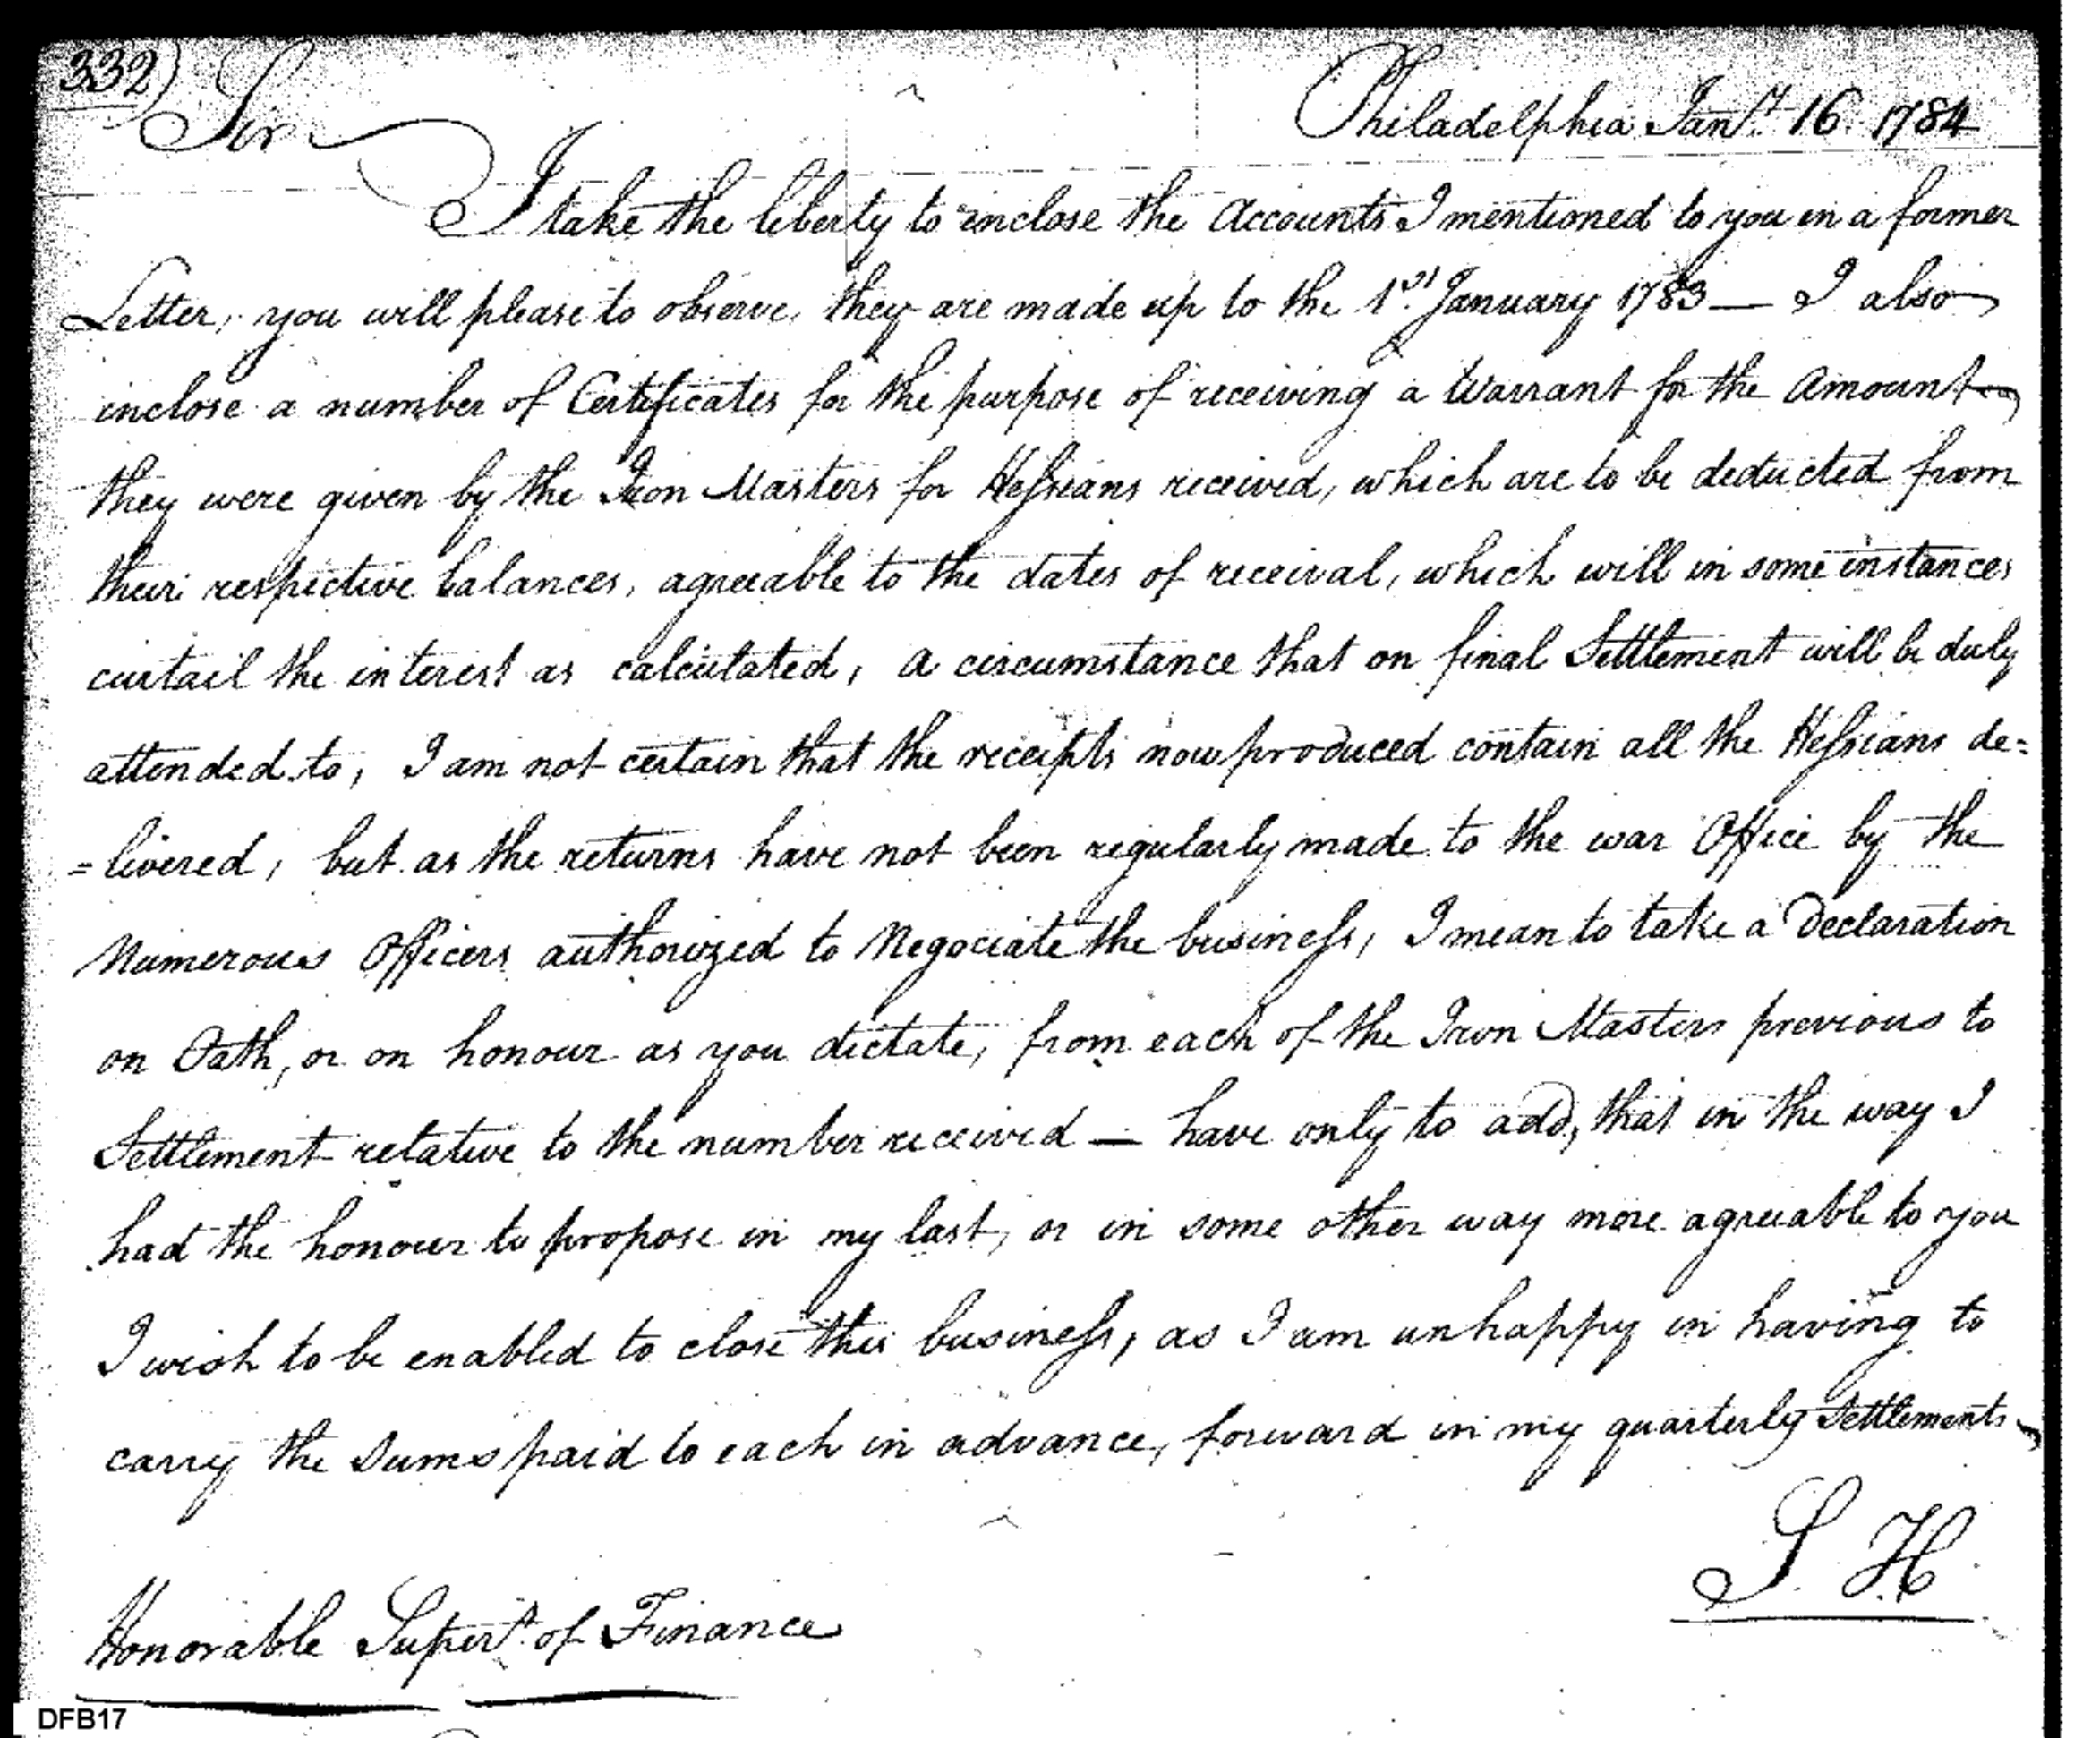 332) Sir Philadelphia Jany. 16. 1784
I take the liberty to inclose the Accounts I mentioned to you in a former
Letter, you will please to observe, they are made up to the 1st. January 1783 — I also
inclose a number of Certificates for the purpose of receiving a Warrant for the Amount
they were given by the Iron Masters for Hessians received, which are to be deducted from
their respective balances, agreeable to the dates of receival, which will in some instances
curtail the interest as calculated, a circumstance that on final Settlement will be duly
attended to, I am not certain that the receipts now produced contain all the Hessians de=
=livered, but as the returns have not been regularly made to the war Office by the
Numerous Officers authorized to Negociate the business, I mean to take a Declaration
on Oath, or on honour as you dictate, from each of the Iron Masters previous to
Settlement relative to the number received — have only to add, that in the way I
had the honour to propose in my last, or in some other way more agreeable to you
I wish to be enabled to close this business, as I am unhappy in having to
carry the Sums paid to each in advance, forward in my quarterly Settlements
S. H.
Honorable Supert. of Finance
DFB17